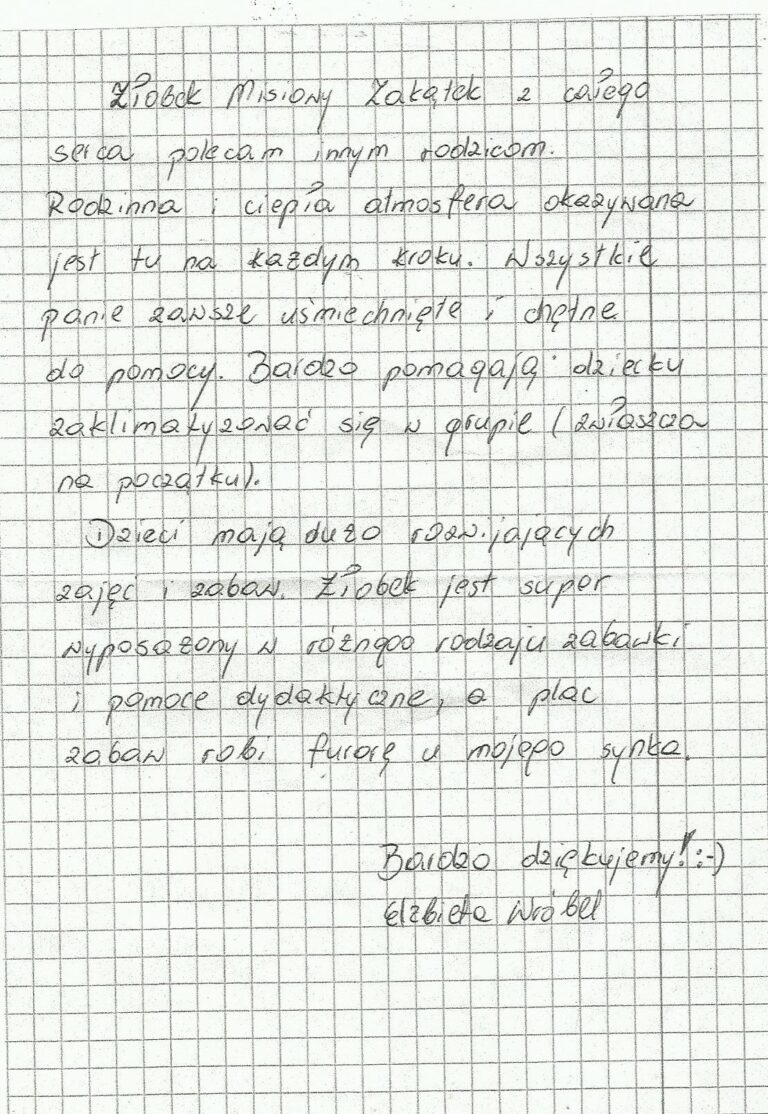 Żłobek Misiowy Zakątek z całego
serca polecam innym rodzicom.
Rodzinna i ciepła atmosfera okazywana
jest tu na każdym kroku. Wszystkie
panie zawsze uśmiechnięte i chętne
do pomocy. Bardzo pomagają dziecku
zaklimatyzować się w grupie (zwłaszcza
na początku).
Dzieci mają dużo rozwijających
zajęć i zabaw. Żłobek jest super
wyposażony w różnego rodzaju zabawki
i pomoce dydaktyczne, a plac
zabaw robi furorę u mojego synka.
Bardzo dziękujemy! :-)
Elżbieta Wróbel